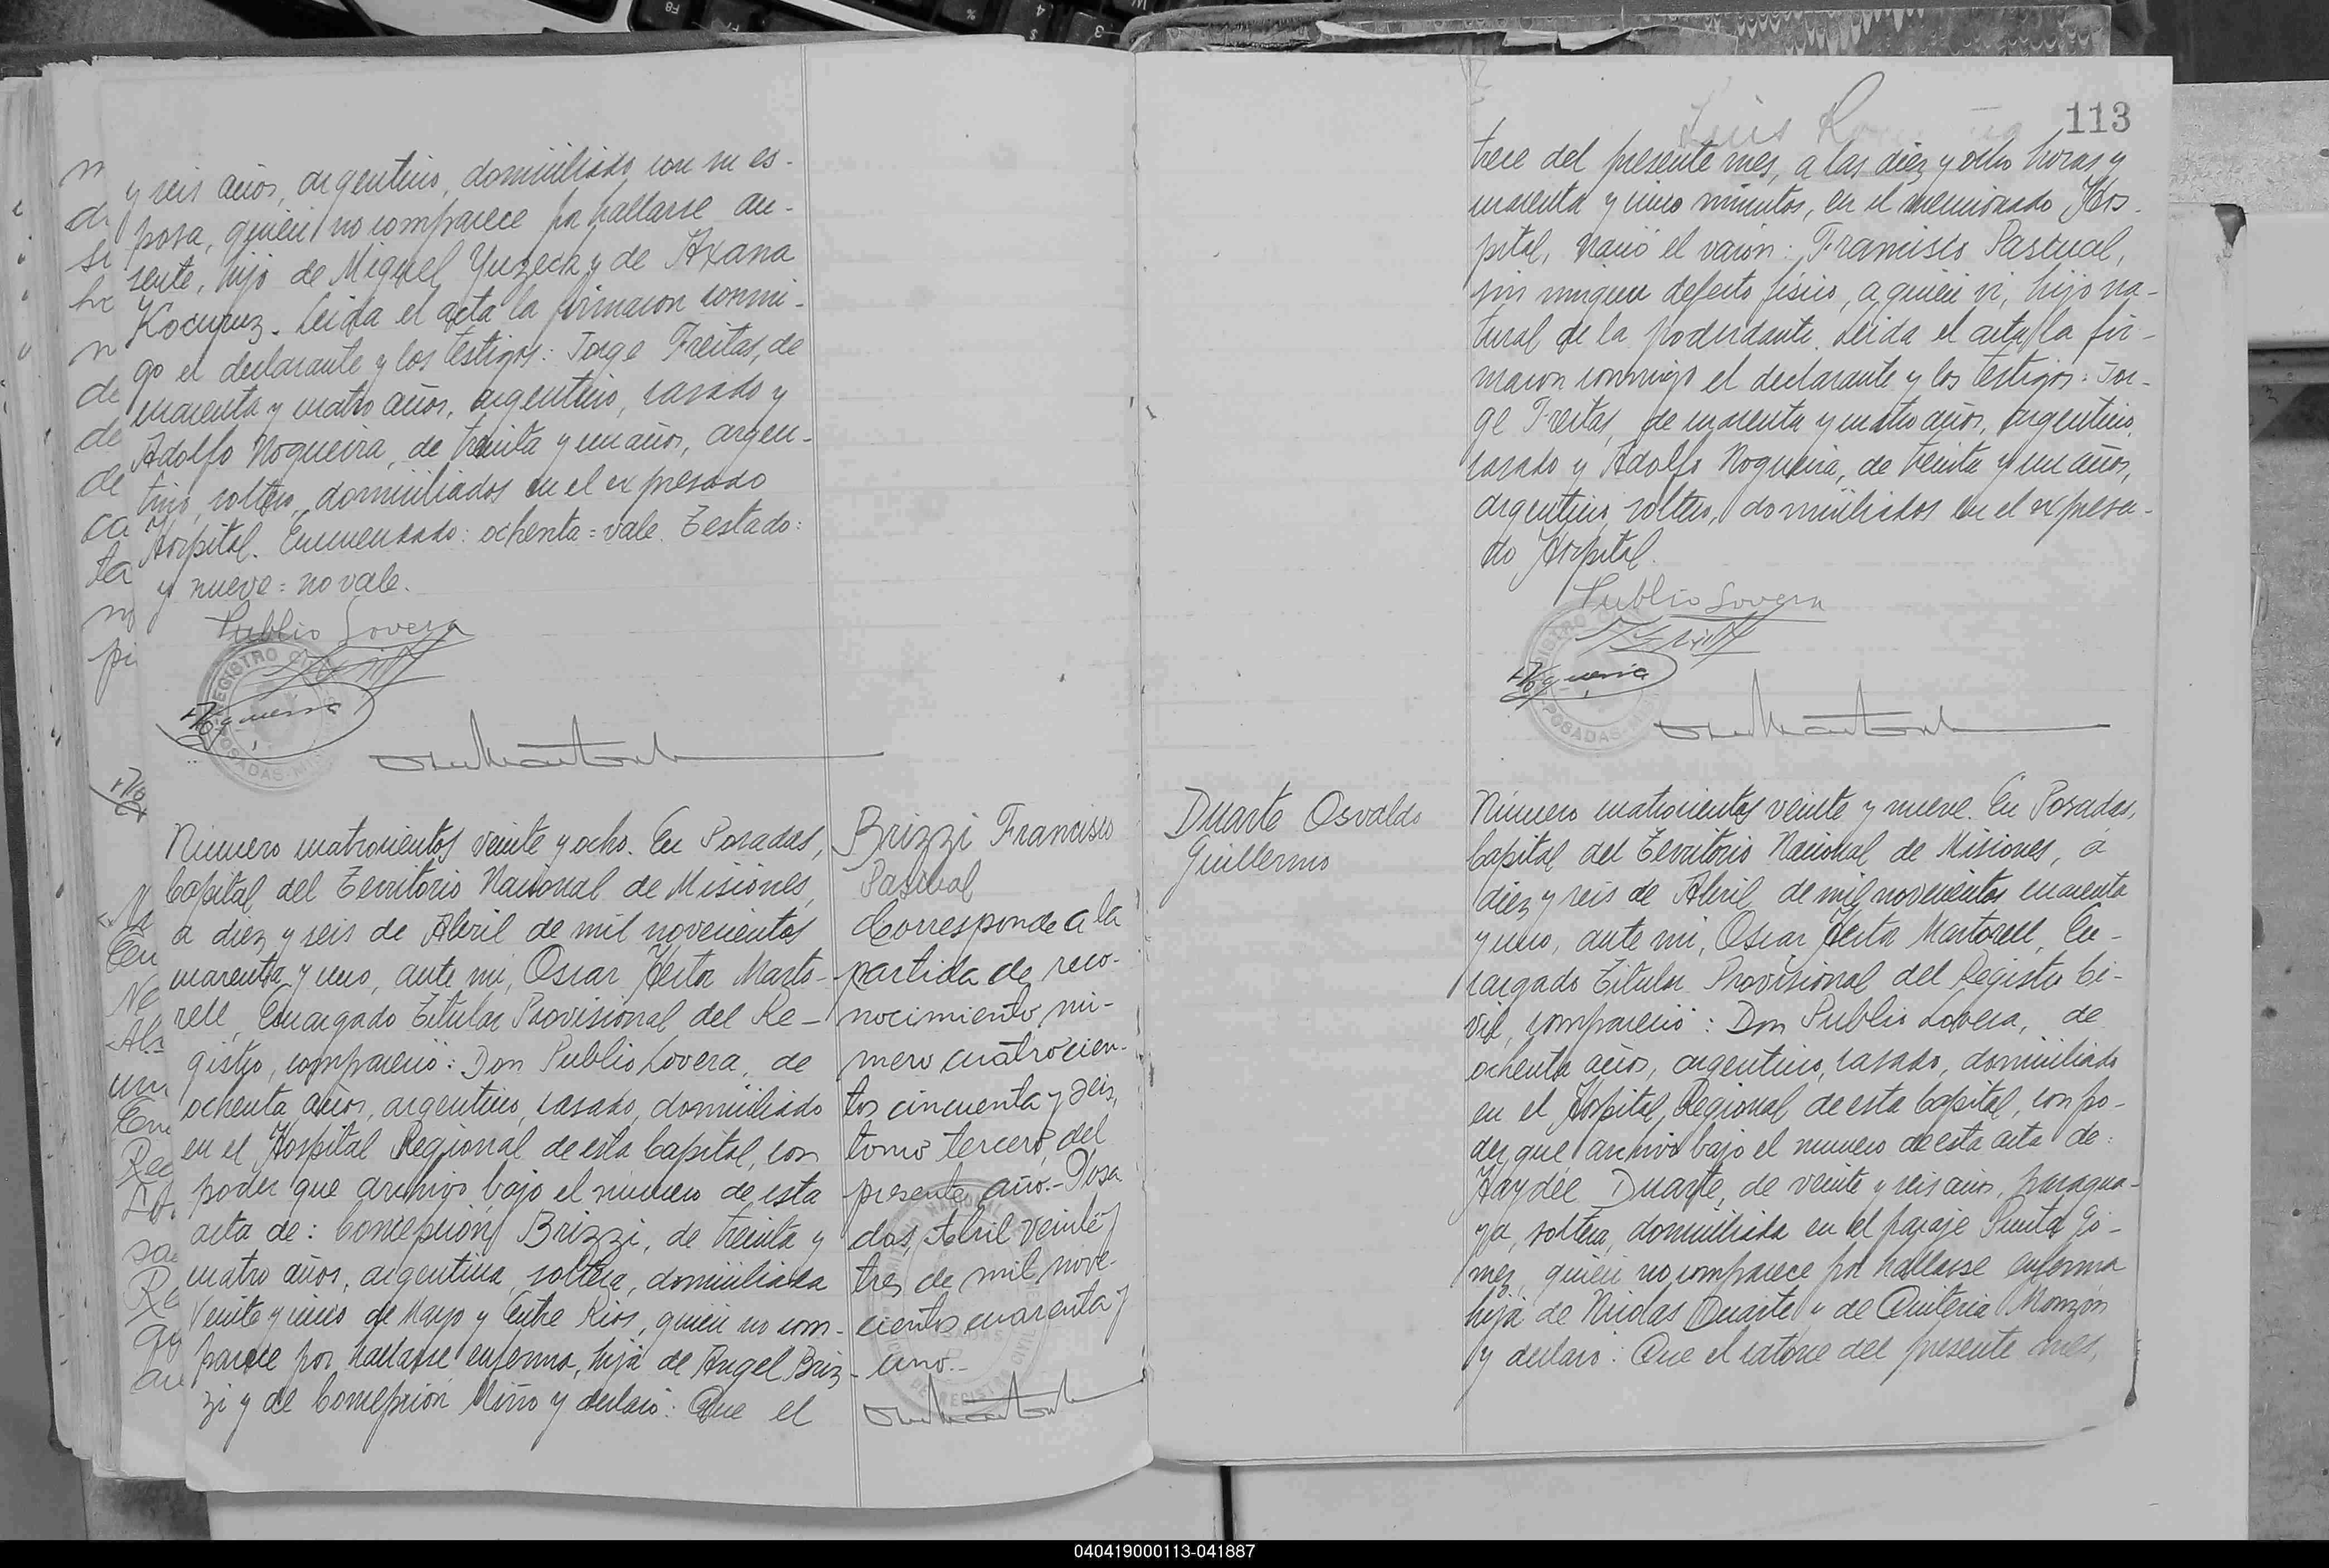 y seis años, argentino, domiciliado con su es-
posa, quien no comparece por hallarse au-
sente, hijo de Miguel Yuzeck y de Axana
Kocuruz. Leida el acta la firmaron conmi-
go el declarante y los testigos: Jorge Freitas, de
cuarenta y cuatro años, argentino, casado y
Adolfo Nogueira, de treinta y un años, argen-
tino, soltero, domiciliados en el expresado
Hospital. Enmendado: ochenta = vale. Testado:
y nueve = no vale.
Publio Lovera
Nogueira
REGISTRO
POSADAS-MIS
Número cuatrocientos veinte y ocho. En Posadas,
Capital del Territorio Nacional de Misiones,
a diez y seis de Abril de mil novecientos
cuarenta y uno, ante mi, Oscar Hector Marto-
rell, Encargado Titular Provisional del Re-
gistro, compareció: Don Publio Lovera, de
ochenta años, argentino, casado, domiciliado
en el Hospital Regional de esta Capital, con
poder que archivo bajo el número de esta
acta de: Concepción Brizzi, de treinta y
cuatro años, argentina, soltera, domiciliada
Veinte y cinco de Mayo y Entre Rios, quien no com-
parece por hallarse enferma, hija de Angel Briz-
zi y de Concepción Miño y declaró: Que el
Brizzi Francisco
Pascual
Corresponde a la
partida de reco-
nocimiento nú-
mero cuatrocien-
tos cincuenta y seis,
tomo tercero, del
presente año.- Posa
das, Abril veinte y
tres de mil nove-
cientos cuarenta y
uno.-
113
Luis
trece del presente mes, a las diez y ocho horas y
cuarenta y cinco minutos, en el mencionado Hos-
pital, nació el varón: Francisco Pascual,
sin ningun defecto físico, a quien vi, hijo na-
tural de la poderdante. Leida el acta, la fir-
maron conmigo el declarante y los testigos: Jor-
ge Freitas, de cuarenta y cuatro años, argentino,
casado y Adolfo Nogueira, de treinta y un años,
argentino, soltero, domiciliados en el expresa-
do Hospital.
Publio Lovera
Nogueira
POSADAS-MIS
Duarte Osvaldo
Guillermo
Número cuatrocientos veinte y nueve. En Posadas,
Capital del Territorio Nacional de Misiones, a
diez y seis de Abril de mil novecientos cuarenta
y uno, ante mi, Oscar Hector Martorell, En-
cargado Titular Provisional del Registro Ci-
vil, compareció: Don Publio Lovera, de
ochenta años, argentino, casado, domiciliado
en el Hospital Regional de esta Capital, con po-
der que archivo bajo el numero de esta acta de:
Haydée Duarte, de veinte y seis años, paragua-
ya, soltera, domiciliada en el paraje Punta Gó-
mez, quien no comparece por hallarse enferma
hija de Nicolas Duarte y de Quiteria Monzón
y declaró: Que el catorce del presente mes,
040419000113-041887